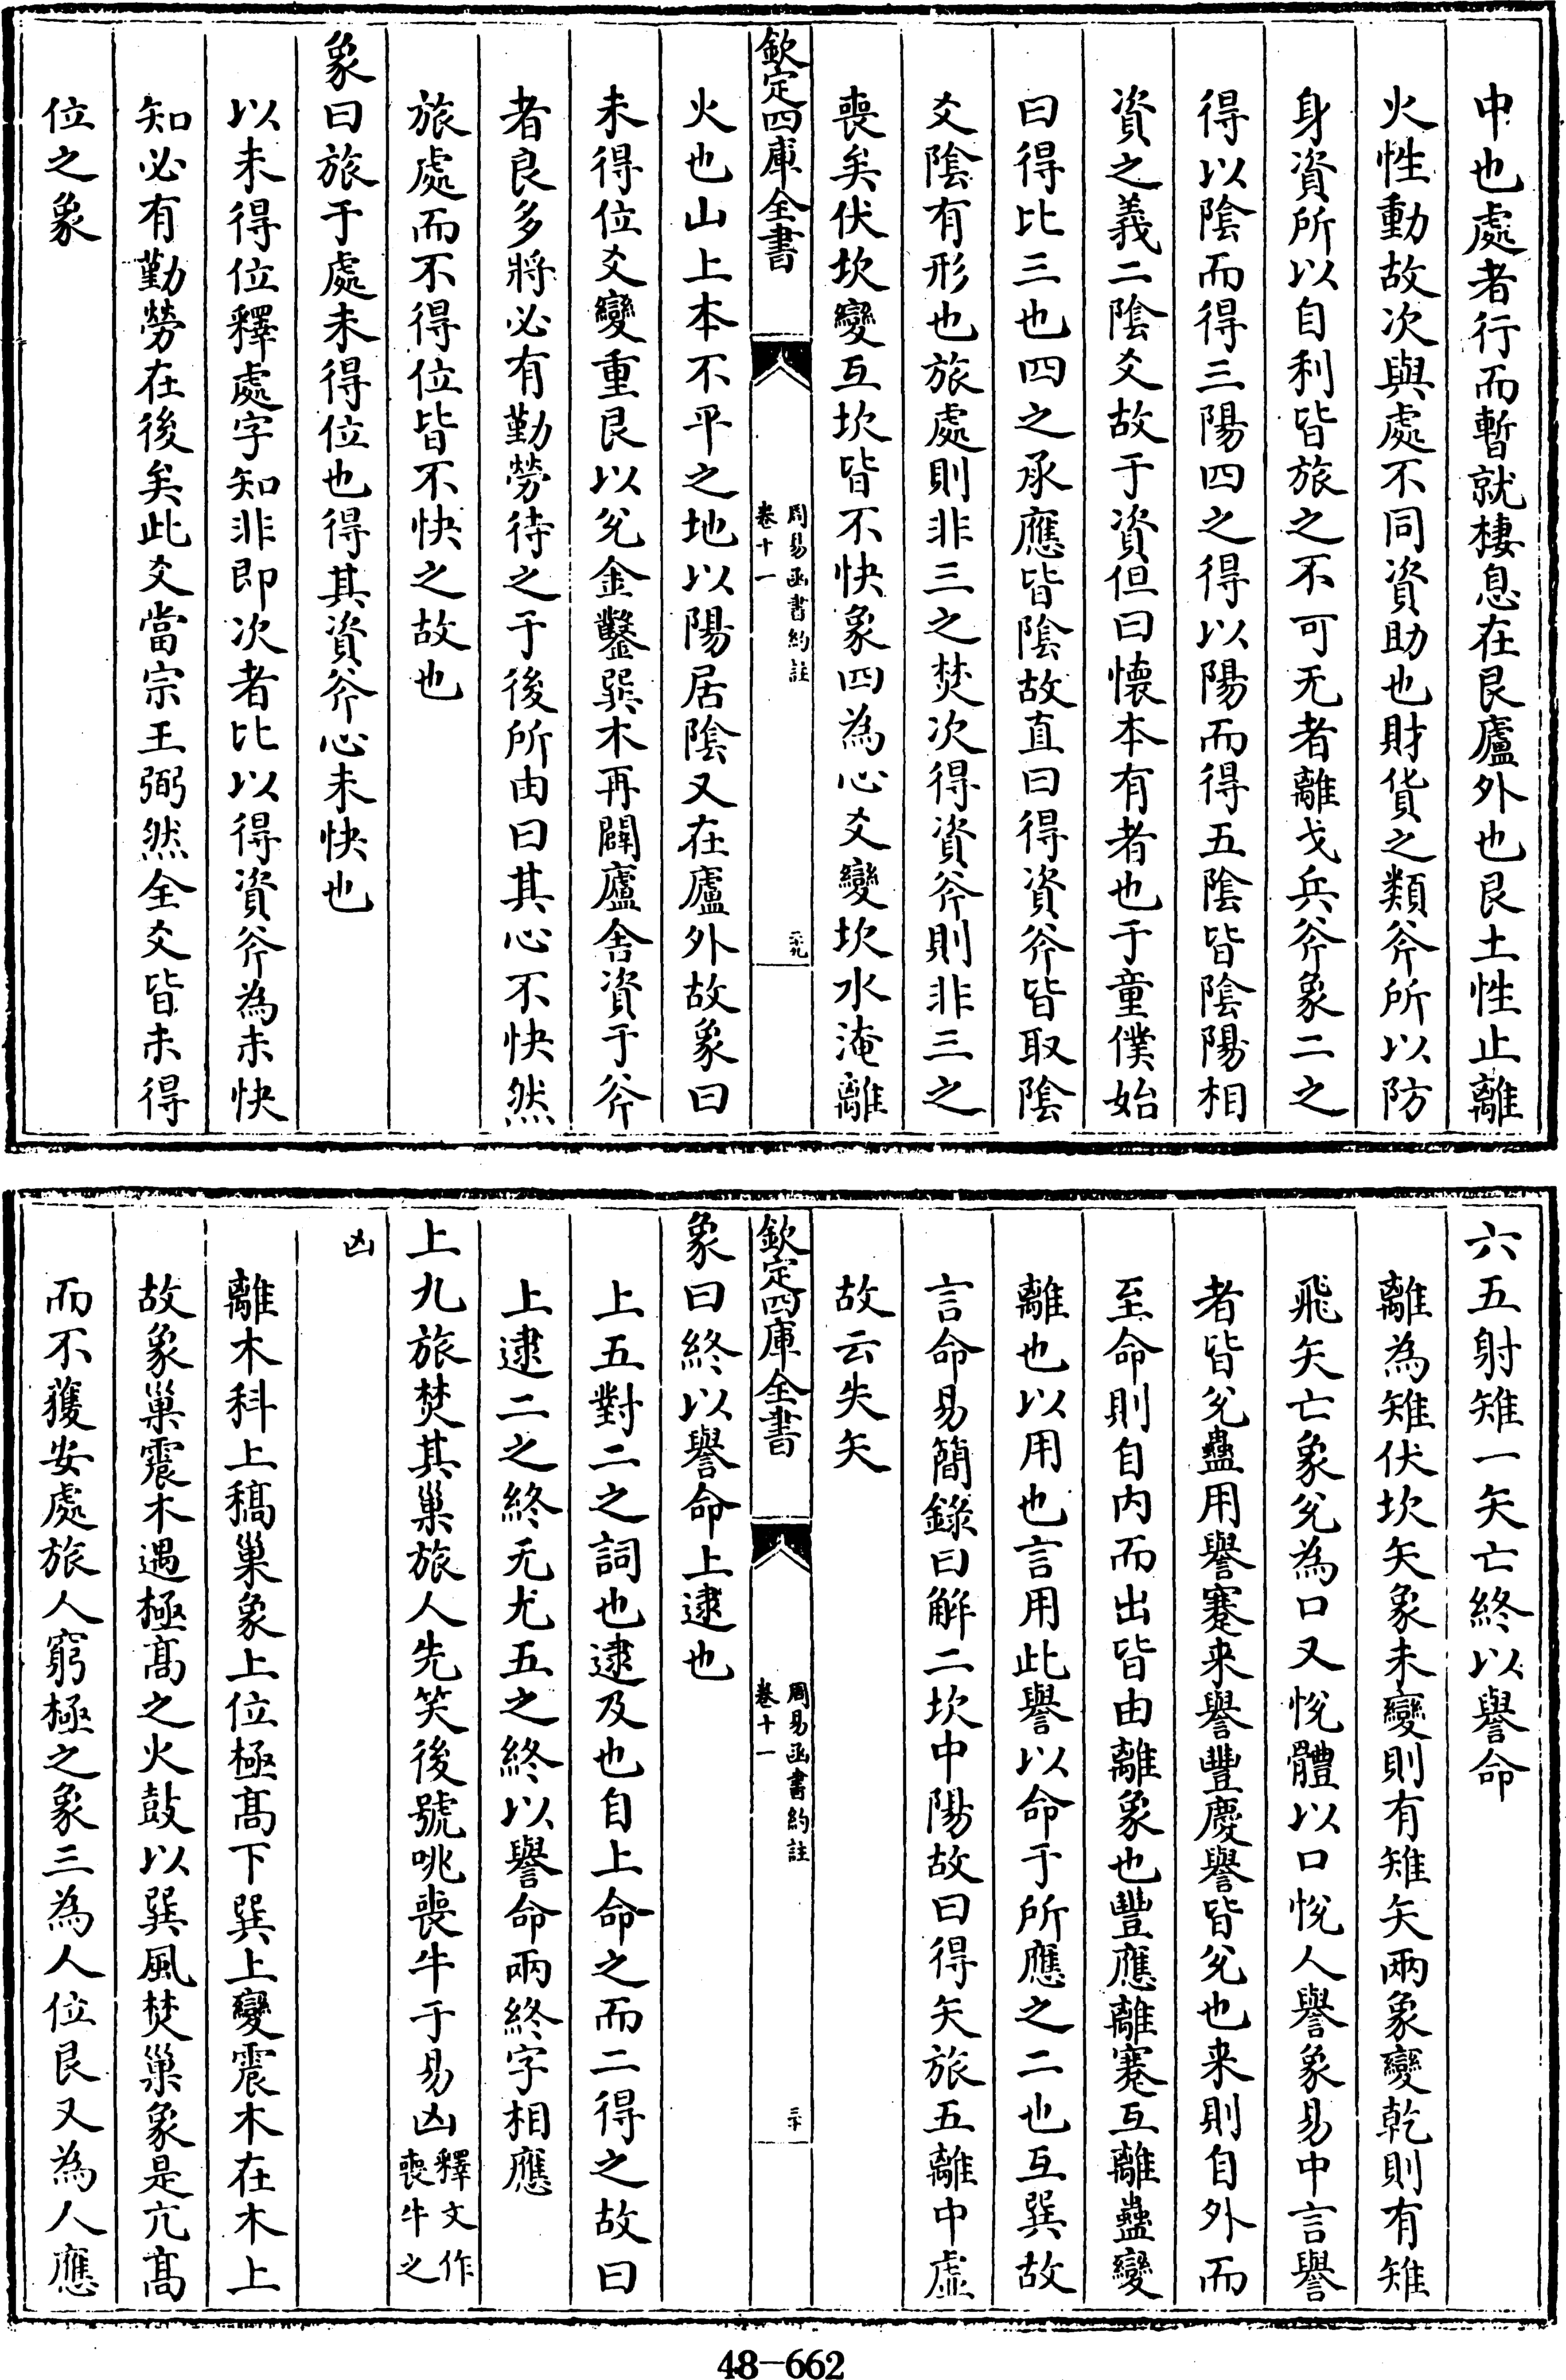 中也處者行而暫就棲息在艮廬外也艮土性止離
火性動故次與處不同資助也財貨之類斧所以防
身資所以自利皆旅之不可无者離戈兵斧象二之
得以陰而得三陽四之得以陽而得五陰皆陰陽相
資之義二陰爻故于資但曰懐本有者也于童僕始
曰得比三也四之承應皆陰故直曰得資斧皆取陰
爻陰有形也旅處則非三之焚次得資斧則非三之
喪矣伏坎變互坎皆不快象四為心爻變坎水淹離
欽定四庫全書
周易函書約註
卷十一
二十九
火也山上本不平之地以陽居陰又在廬外故象曰
未得位爻變重艮以兊金鑿巽木再闢廬舍資于斧
者良多將必有勤勞待之于後所由曰其心不快然
旅處而不得位皆不快之故也
象曰旅于處未得位也得其資斧心未快也
以未得位釋處字知非即次者比以得資斧為未快
知必有勤勞在後矣此爻當宗王弼然全爻皆未得
位之象
六五射雉一矢亡終以譽命
離為雉伏坎矢象未變則有雉矢兩象變乾則有雉
飛矢亡象兊為口又悅體以口悅人譽象易中言譽
者皆兊蠱用譽蹇来譽豐慶譽皆兊也来則自外而
至命則自内而出皆由離象也豐應離蹇互離蠱變
離也以用也言用此譽以命于所應之二也互巽故
言命易簡錄曰解二坎中陽故曰得矢旅五離中虛
故云失矢
欽定四庫全書
周易函書約註
卷十一
三十
象曰終以譽命上逮也
上五對二之詞也逮及也自上命之而二得之故曰
上逮二之終无尤五之終以譽命兩終字相應
上九旅焚其巢旅人先笑後號咷喪牛于易凶釋文作喪牛之
凶
離木科上稿巢象上位極髙下巽上變震木在木上
故象巢震木遇極髙之火鼓以巽風焚巢象是亢髙
而不獲安處旅人窮極之象三為人位艮又為人應
48-662